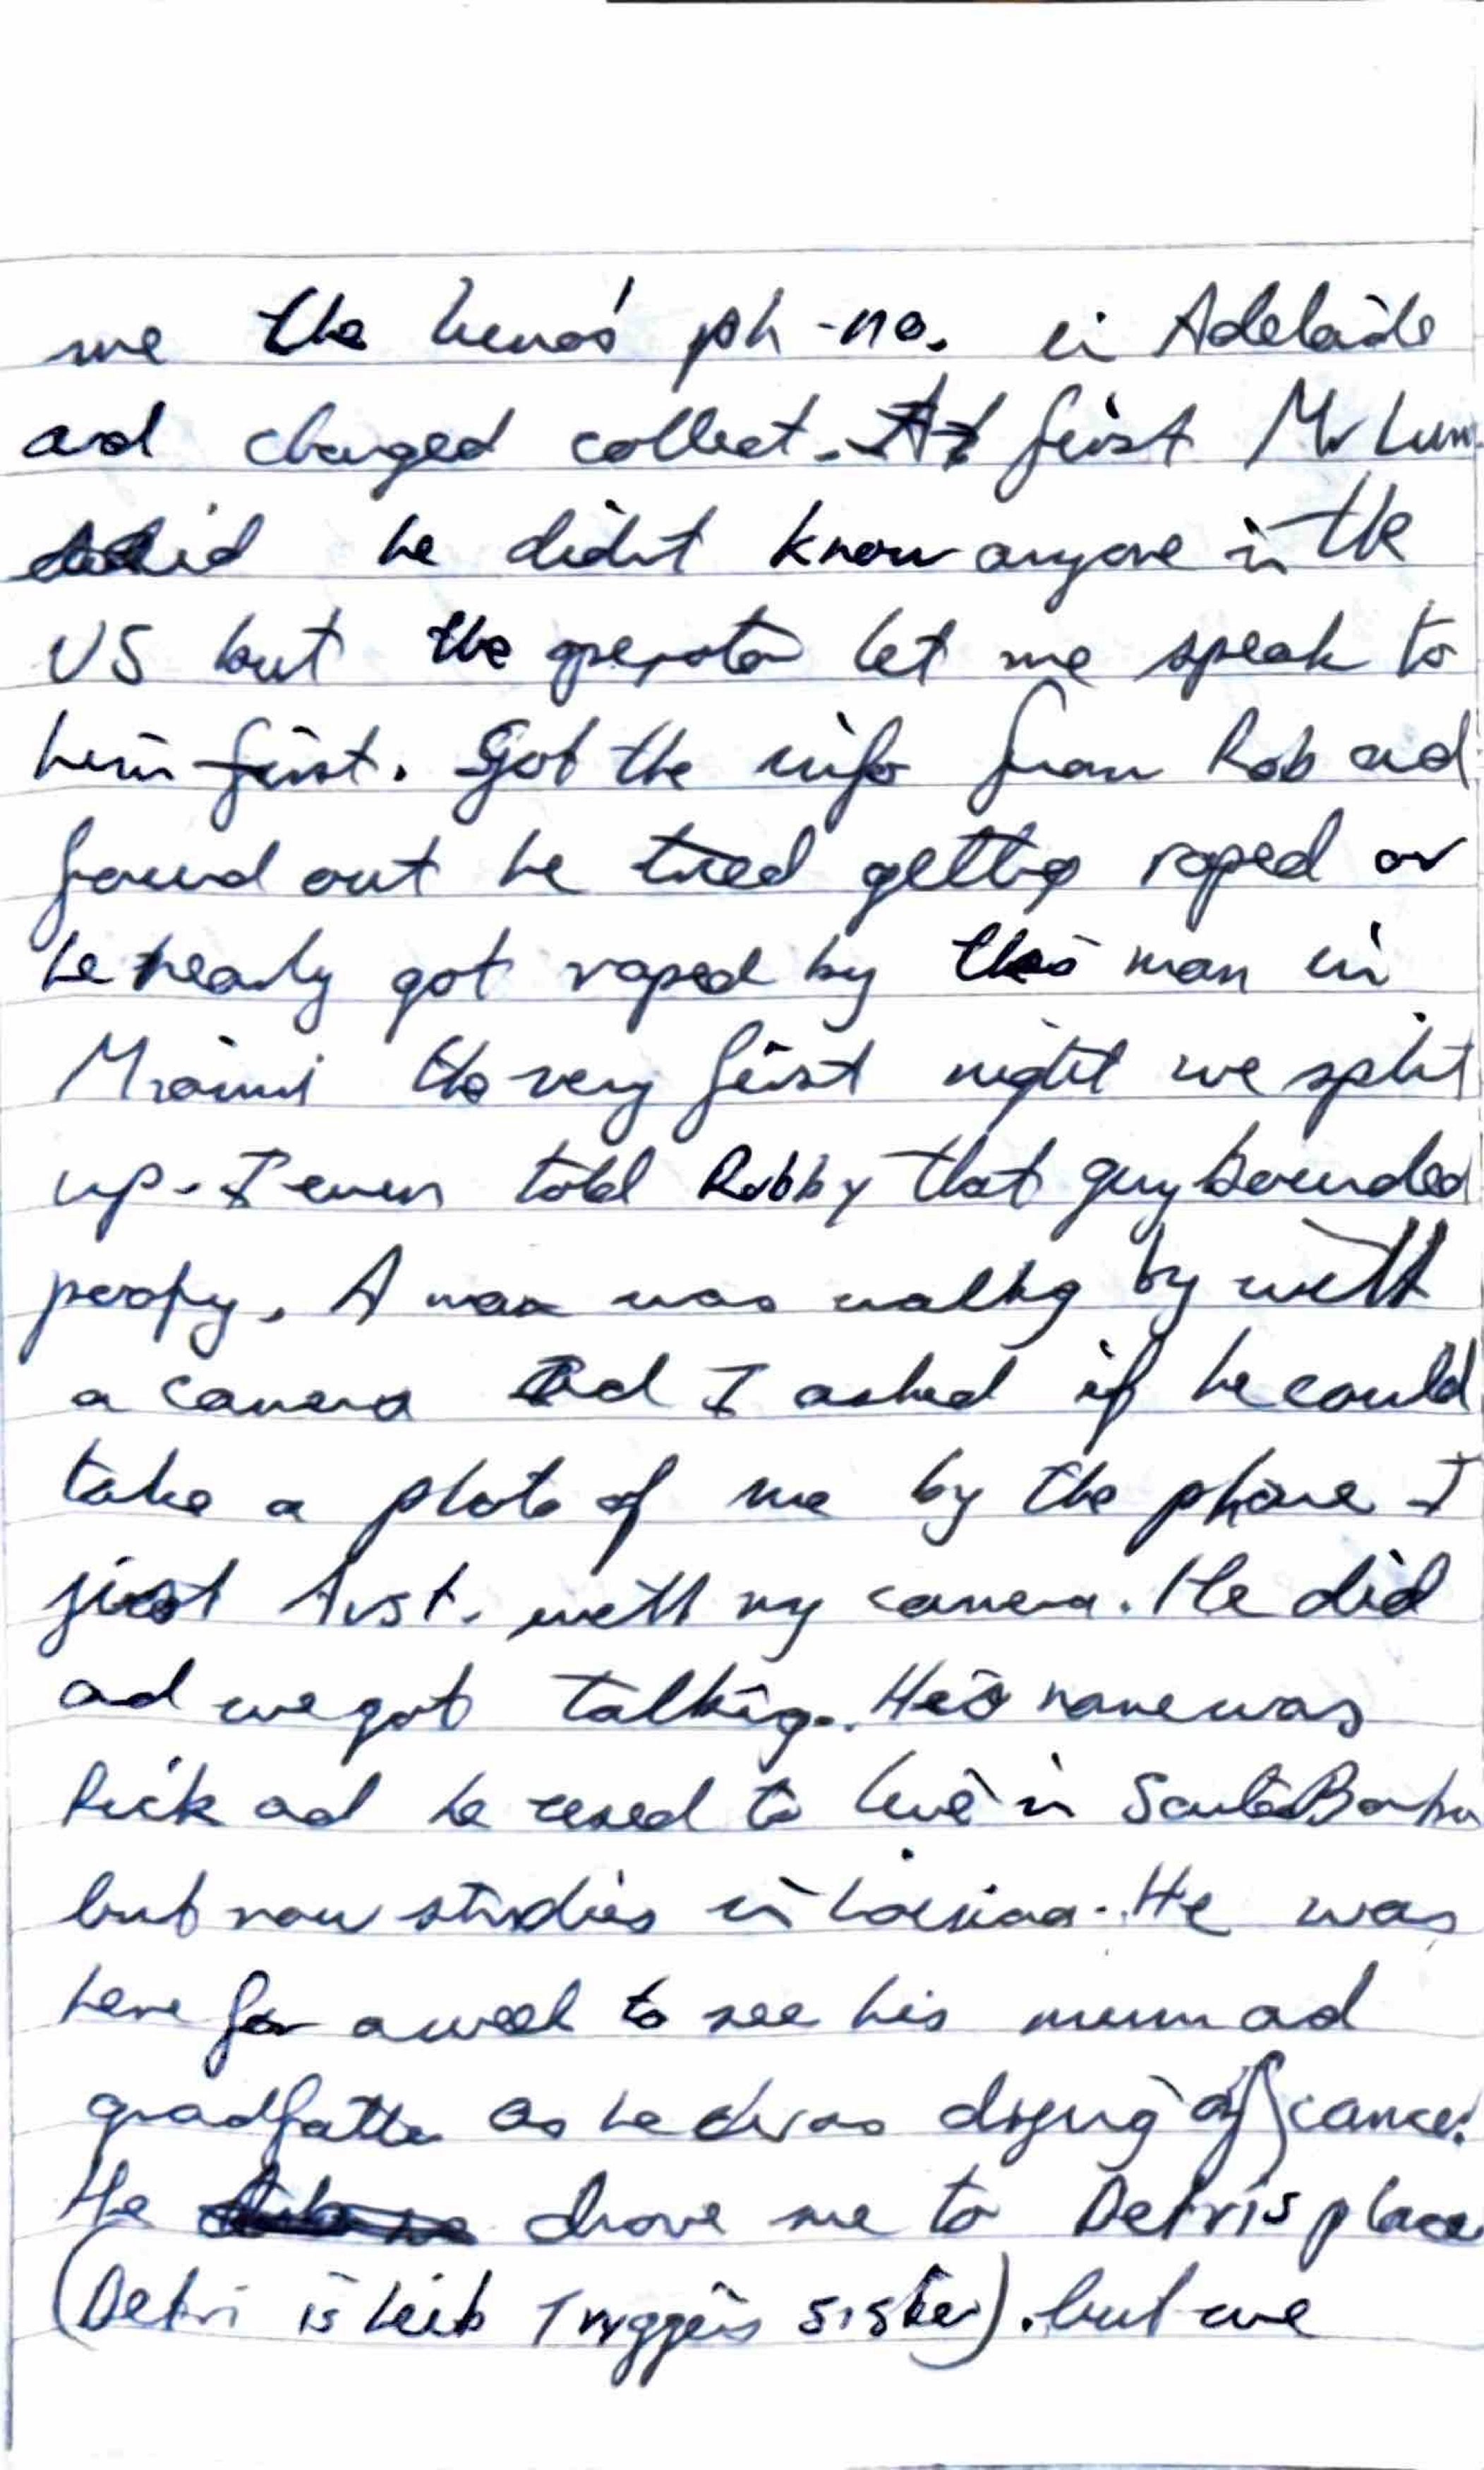 me the Lums' ph-no. in Adelaide
and charged collect. At first Mr Lum
said he didnt know anyone in the
US but the operator let me speak to
him first. Got the info from Rob and
found out he tried getting raped or
he nearly got raped by this man in
Miami the very first night we split
up. I even told Robby that guy sounded
poofy. A man was walking by with
a camera and I asked if he could
take a photo of me by the phone I
just Aust. with my camera. He did
and we got talking. His name was
Rick and he used to live in Santa Barbra
but now studies in. He was
here for a week to see his mum and
grandfather as he was dying of cancer.
He drove me to Detris place
(Detri is Leib Triggeis sister). but we